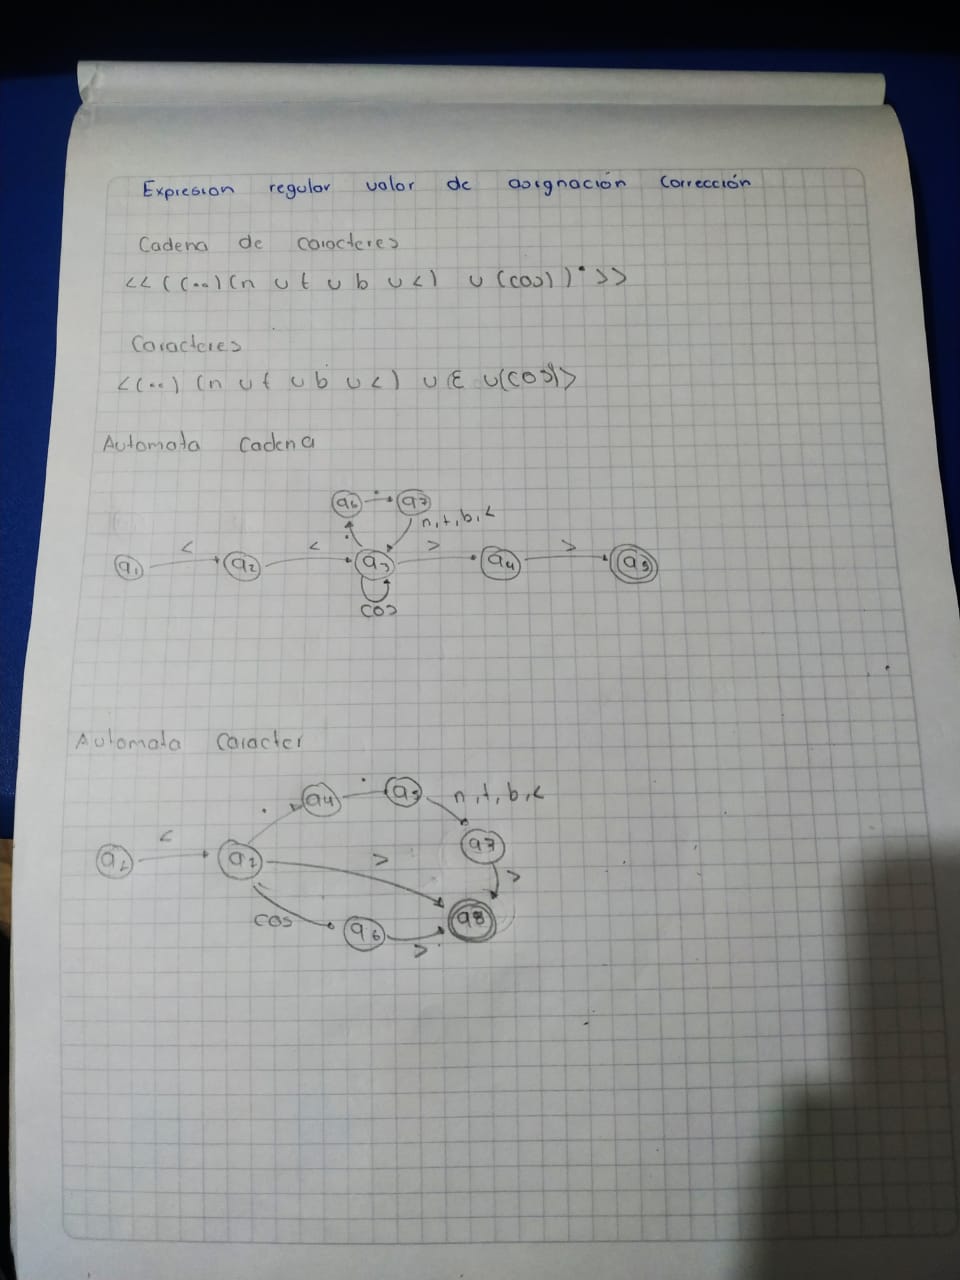 Expresion regular valor de asignación Corrección
Cadena de caracteres
<< ((..)(n ∪ t ∪ b ∪ <) ∪ (cos))* >>
Caracteres
<(..) (n ∪ t ∪ b ∪ <) ∪ E ∪ (cos)>
Automata Cadena
q6 . q7
n,t,b,<
.
q1 < q2 < q3 > q4 > q5
cos
Automata Caracter
. q4 . q5 n,t,b,<
q1 < q2 > q7 >
cos q6 > q8